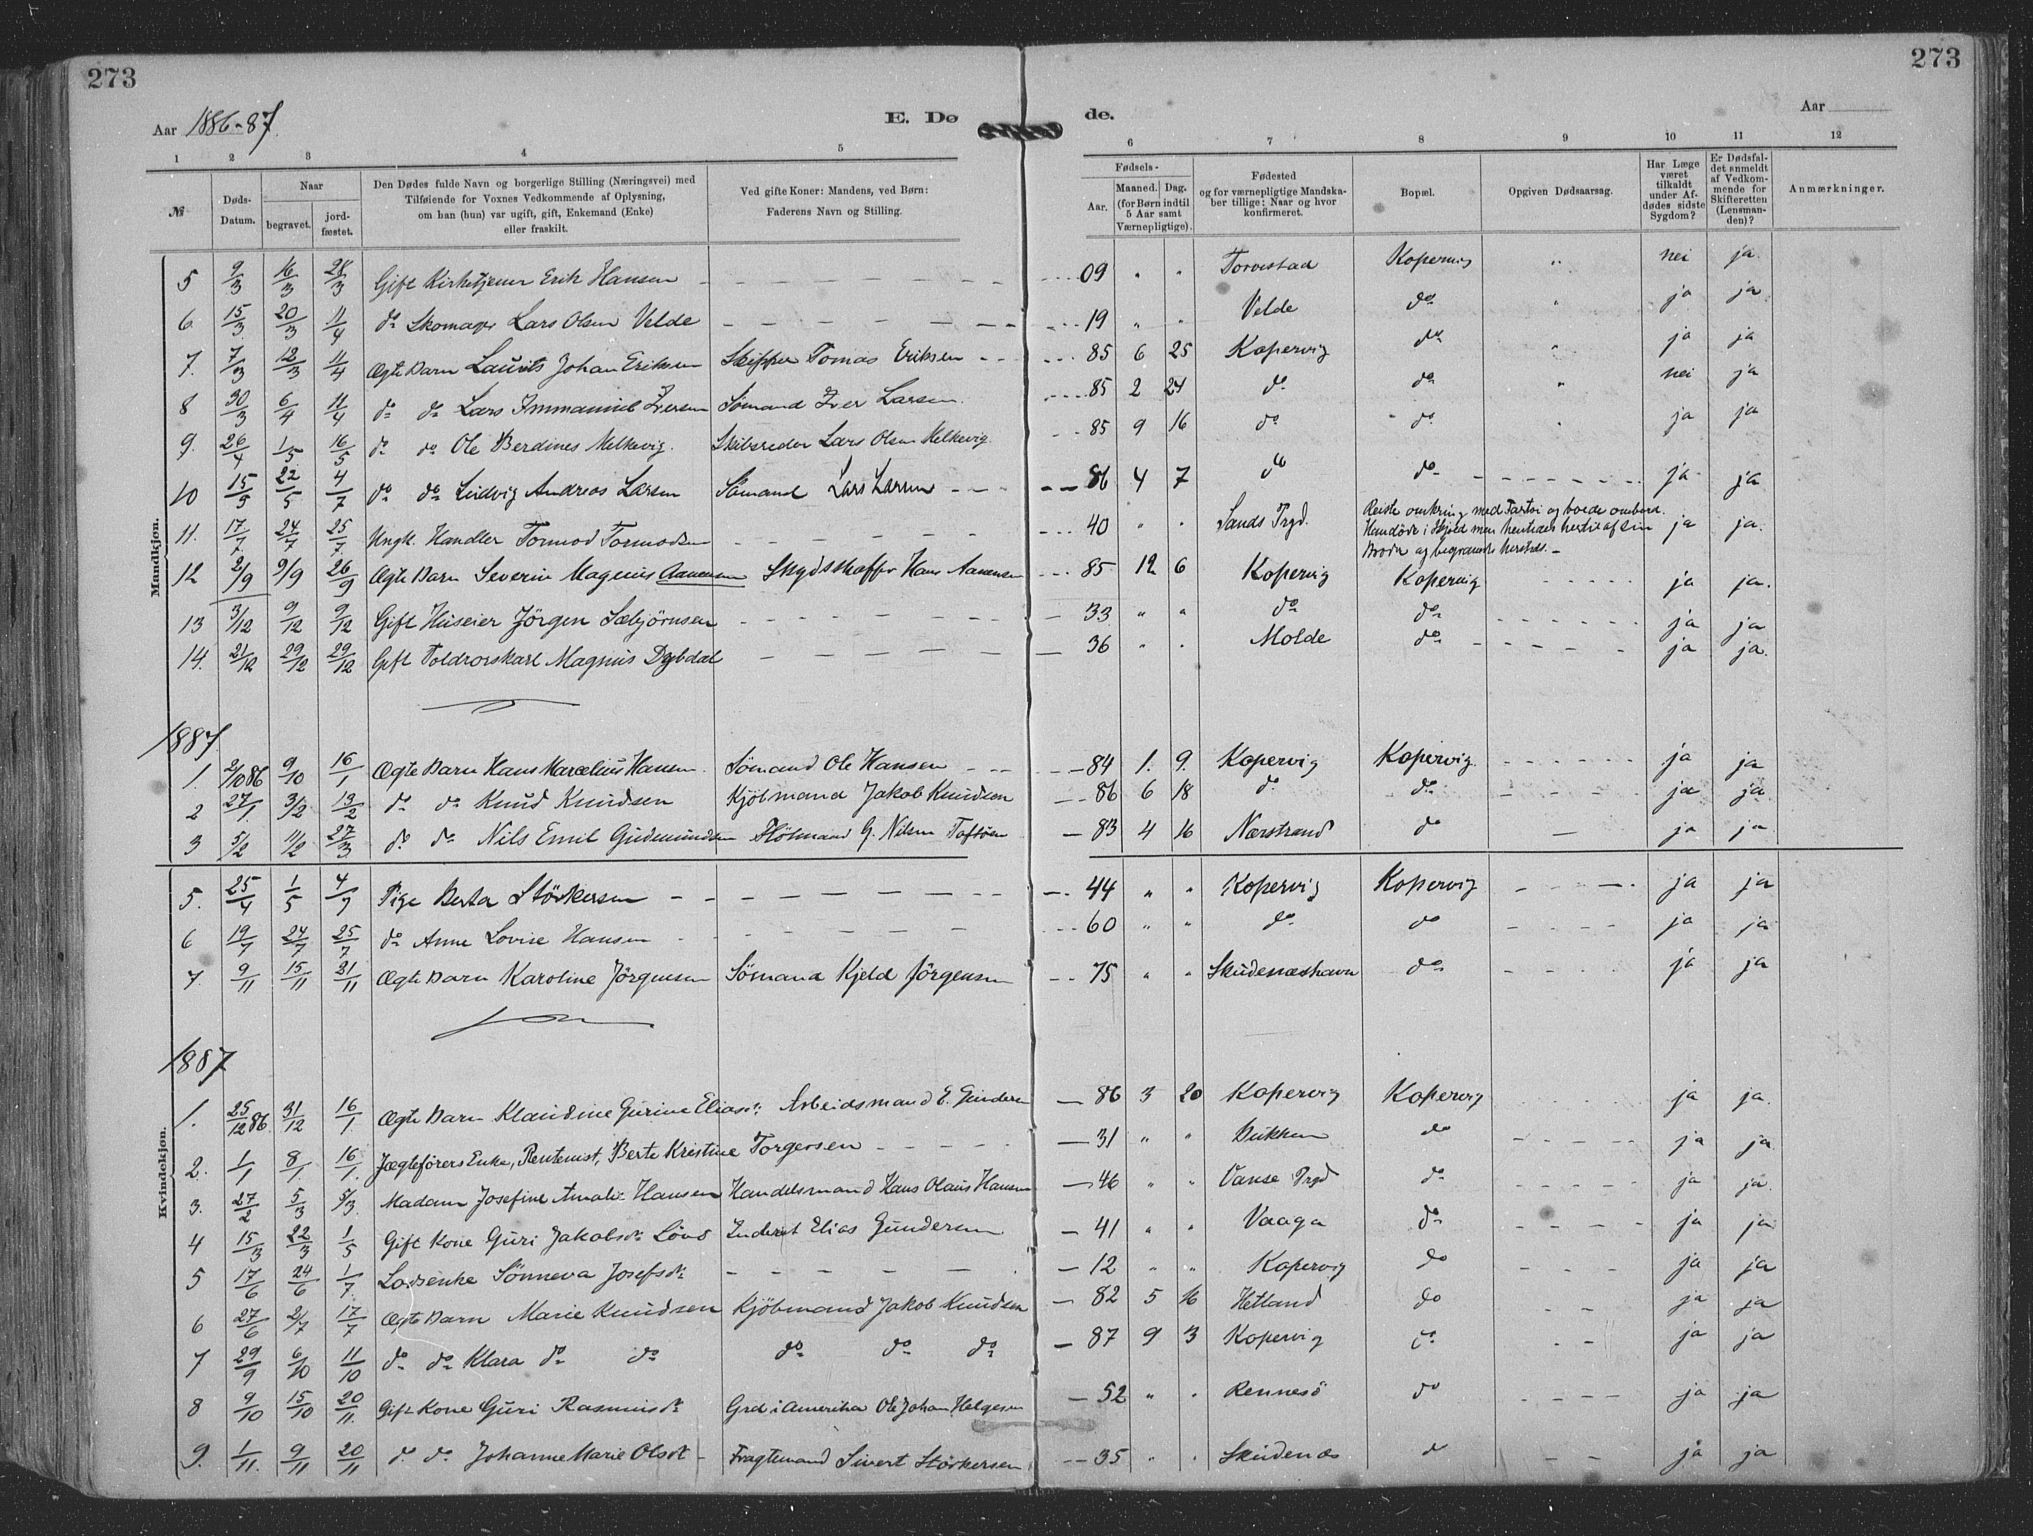 273
273
Aar 1886-87.
E. Dø
de.
Aar
1 2 3 4 5 6 7 8 9 10 11 12
№
Døds-Datum.
Naar
begravet.
jord-fæstet.
Den Dødes fulde Navn og borgerlige Stilling (Næringsvei) med
Tilføiende for Voxnes Vedkommende af Oplysning,
om han (hun) var ugift, gift, Enkemand (Enke)
eller fraskilt.
Ved gifte Koner: Mandens, ved Børn:
Faderens Navn og Stilling.
Fødsels-
Aar.
Maaned. Dag.
(for Børn indtil
5 Aar samt
Værnepligtige).
Fødested
og for værnepligtige Mandska-
ber tillige: Naar og hvor
konfirmeret.
Bopæl.
Opgiven Dødsaarsag.
Har Læge
været
tilkaldt
under Af-
dødes sidste
Sygdom?
Er Dødsfal-
det anmeldt
af Vedkom-
mende for
Skifteretten
(Lensman-
den)?
Anmærkninger.
Mandkjøn.
5 9/3 16/3 28/3 Gift Kirketjener Erik Hansen 09 " " Torvestad Kopervig " nei ja
6. 15/3 20/3 11/4 do Skomager Lars Olsen Velde 19 " " Velde do " ja ja
7. 7/3 12/3 11/4 Ægte Barn Laurits Johan Eriksen Skipper Tomas Eriksen 85 6 25 Kopervig do " ja ja
8 30/3 6/4 11/4 do do Lars Immanuel Iversen Sømand Iver Larsen. 85 2 24 do do " nei ja
9. 26/4 1/5 16/5 do do Ole Berdines Melkevig. Skibsreder Lars Olsen Melkevig 85 9 16 do do ja ja
10 15/5 22/5 4/7 do do Ludvig Andreas Larsen Sømand Lars Larsen 86 4 7 do do ja ja
11. 17/7 24/7 25/7 Ungk. Handler Tormod Tormodsen 40 " " Sands Prgd. Reiste omkring med Fartøi og boede ombord.
Han døde i Skjold men hentedes hertil af sin
Broder og begravedes hersteds. ja ja.
12 2/9 9/9 26/9 Ægte Barn Severin Magnus Aanensen Skydsskaffer Hans Aanensen 85 12 6 Kopervig Kopervig ja ja.
13 3/12 9/12 9/12 Gift Huseier Jörgen Sæbjörnsen 33 " " do do ja ja
14. 21/12 29/12 29/12 Gift Toldrorskarl Magnus Dybdal 36 " " Molde do ja ja.
1887
1. 2/10 86 9/10 16/1 Ægte Barn Hans Marcelius Hansen. Sömand Ole Hansen 84 1. 9. Kopervig Kopervig. ja ja
2 27/1 3/2 13/2 do do Knud Knudsen Kjöbmand Jakob Knudsen 86 6 18 do do ja ja
3 5/2 11/2 27/3 do do Nils Emil Gudmundsen G. Nilsen 83 4 16 Nærstrand do ja ja
5. 25/4 1/5 4/7 Pige Berta Störkersen 44 " " Kopervig Kopervig ja ja
6 19/7 24/7 25/7 do Anne Lovise Hansen 60 " " do do ja ja
7. 9/11 15/11 21/11 Ægte Barn Karoline Jörgensen Sömand Kjeld Jörgensen 75 " " Skudeneshavn do ja ja
Kvindekjøn.
1887
1. 25/12 86. 31/12 16/1 Ægte Barn Klaudine Gurine Eliasdr. Arbeidsmand E. Gundersen 86 3 20 Kopervig Kopervig ja ja.
2. 1/1 8/1 16/1. Jægteförers Enke, Rentenist, Berte Kristine Torgersen 31 " " Bukken do ja ja
3. 27/2 5/3 5/3. Madam Josefine Amalie Hansen Handelsmand Hans Olaus Hansen 46 " " Vanse Prgd do ja ja.
4 15/3 22/3 1/5 Gift Kone Guri Jakobsdr. Elias Gundersen 41 " " Vaaga do ja ja
5 17/6 24/6 1/7. Lodsenke Sönneva Josefsdr 12 " " Kopervig do ja ja
6 27/6 2/7 17/7 Ægte Barn Marie Knudsen Kjöbmand Jakob Knudsen 82 5 16 Hetland do ja ja
7 29/9 6/10 11/10 do do Klara do do do do do 87 9 3 Kopervig do ja ja
8 9/10 15/10 20/11. Gift Kone Guri Rasmusdr Grd i Amerika Ole Johan Helgesen 52 " " Rennesö do ja ja
9. 1/11. 9/11 20/11 do do Johanne Marie Olsdr Fragtemand Sivert Störkersen 35 " " Skudenæs d ja ja